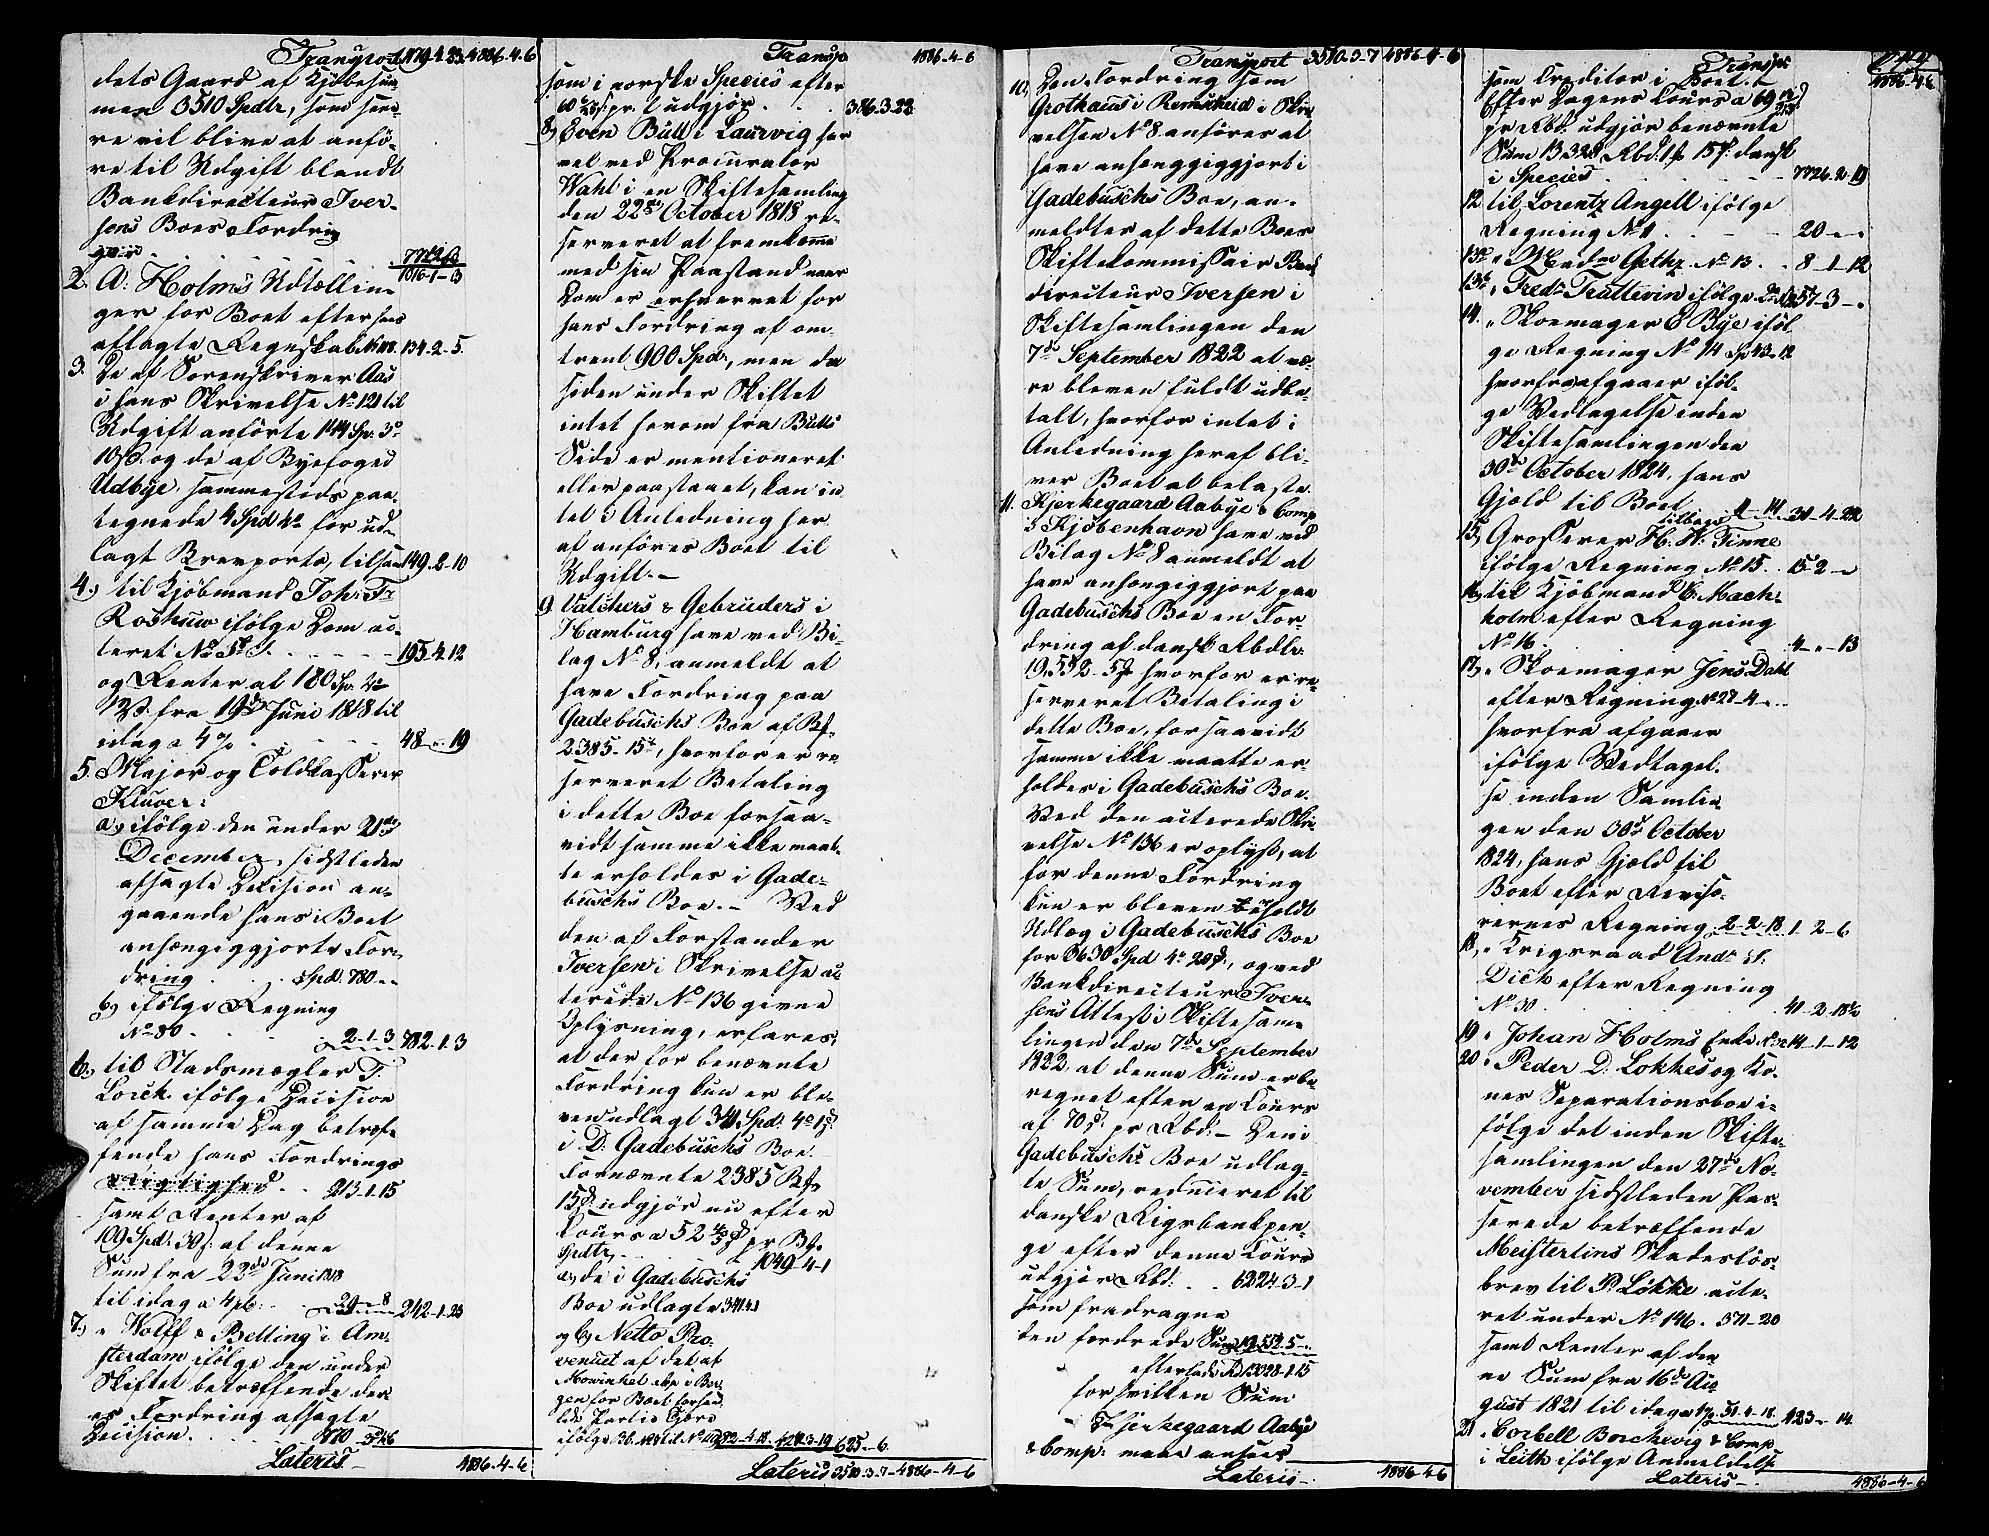 Transport 1179.4.23. 4886-4-6
dets Gaard af Kjøbesum
men 3510 Spdlr, som her-
re vil blive at anfö-
re til Udgift blandt
Bankdirecteur Iver-
sens Boes Fordrin
ger
1016-1-13
2. A. Holms Udtællin-
ger for Boet efter hans
aflagte Regnskab 134-2-5.
3. De af Sorenskriver Aas
i hans Skrivelse No 121 til
Udgift anförte 144 Sp. 3o
10 s. og de af Byefoged
Udbye, sammesteds paa-
tegnede 4 Spd 4o for ud-
lagt Brevporto, tilsam 149.2-10
4, til Kjöbmand Joh: Fr
Roshuw ifölge Dom ac-
teret No 195.4.12
og Renter af 180 Sp. 4o
fra 19de Juni 1818 til
idag a 4 % 48 - 19
5. Major og Toldkasserer
Klüver:
a, ifölge den under 21de
December sidstleden
afsagte Decision an-
gaaende hans i Boet
anhængiggjorte For-
dring Spd. 780
b, ifölge Regning
No 80 2-1-3 782-1-3
6, til Stadsmægler T.
Lorck ifölge Decision
af samme Dag betref-
fende hans Fordrings
Rigtighed 213.1.15
samt Renter af
109 Spd: 30 s: af denne
Sum fra 23de Juni 1818
til idag a 4 pC. 29 - 8 242-1-23
7, " Wolff & Betting i Am-
sterdam ifölge den under
Skiftet betræffende der-
es Fordring afsagte
Decision
Lateris 4886-4-6
Transp 4886-4-6
som i norske Species efter
pr. udgjör 386.3.22
8, Even Bull i Laurvig har
vel ved Procurator
Wahl i en Skiftesamling
den 22de October 1818 re-
serveret at fremkomme
med sin Paastand naar
Dom er erhvervet for
hans Fordring af om-
trent 900 Spd., men da
siden under Skiftet
intet herom fra Bulls
Side er mentioneret
eller paastaaet, kan in-
tet i Anledning her-
af anföres Boet til
Udgift. -
9. Vatchers & Gebrüders i
Hamburg have ved Bi-
lag No 8, anmeldt at
have Fordring paa
Gadebuschs Boe af Bf
2385-15s, hvorfor er re-
serveret Betaling
i dette Boe forsaa-
vidt samme ikke maat-
te erholdes i Gade-
buschs Boe. - Ved
den af Forstander
Iversen i Skrivelse ac-
terede No 136 givne
Oplysning, erfares,
at der for benævnte
Fordring kun er ble-
ven udlagt 341 Spd: 4o 1s
i D: Gadebuschs Boe.
Fornævnte 2385 Bf
15s udgjör nu efter
Cours a 52 pr Bf.
1049-4-1
a, de i Gadebuschs
Boe udlagte 341.4.1
og b, Netto Pro-
venuet af det af
Mowinkel i Ber-
gen for Boet forhan-
lede Partie
ifölge 625 - 6.
Lateris 3510.3.7 - 4886-4-6
Transport 3510.3-7 4886-4-6
10, Den Fordring som
Grothaus i Remscheid i Skri
velsen No 8 anföres at
have anhænggiggjort i
Gadebuschs Boe, an-
meldtes af dette Boes
Skiftekommissair Bank
directeur Iversen i
Skiftesamlingen den
7de September 1822 at væ-
re bleven fuldt udbe-
talt, hvorfor intet i
Anledning heraf bli-
ver Boet at belaste.
11. Kjerkegaard Aabye & Comp
i Kjöbenhavn have ved
Bilag No 8 anmeldt at
have anhængiggjort paa
Gadebuschs Boe en For-
dring af dansk Rbdlr.
19,552-5s hvorfor er re-
serveret Betaling i
dette Boe, forsaavidt
samme ikke maatte er-
holdes i Gadebuschs Boe.
Ved den acterede Skri-
velse No 136 er oplyst, at
for denne Fordring
kun er bleven erholdt
Udlæg i Gadebuschs Boe
for 3630 Spd 4o 20s, og ved
Bankdirecteur Iver-
sens Attest i Skiftesam-
lingen den 7de September
1822, at denne Sum er be-
regnet efter en Cours
af 70 s. pr Rbd. - Den i
Gadebuschs Boe udlag-
te Sum, reduceret til
danske Rigsbankpen-
ge efter denne Cours
udgjör Rbd. 6224-3-1
som fradragne
den fordrede Sum 19552.5
efterlade Rd 13028-1.15
for hvilken Sum
Kjerkegaard Aabye
& Comp: maae ansees
Lateris 4886-4-6
Transp 4886-4-6
som Creditor i Boet.
Efter Dagens Cours a 69
pr Rbd. udgjör benævnte
Sum 13328 Rbd. 1 15s. dansk
i Species 7726.2.19
12. til Lorentz Angell ifölge
Regning No 1 20 - -
13a " Madme Gethz No 13 8-1-12
13b " Fredr Trattevin ifölge 57-3-
14. " Skoemager E Bye iföl-
ge Regning No 14 Sp 43-12
hvorfra afgaaer iföl-
ge Vedtagelse inden
Skiftesamlingen den
30de October 1824, hans
Gjæld til Boet 11-14 31-4-22
15, Grosserer H. W. Finne
ifölge Regning No 15. 15-2-
16, til Kjöbmand C. Mach-
holm efter Regning
No 16 4-"-13
17, " Skoemager Jens Dahl
efter Regning
hvorfra afgaaer
ifölge Vedtagel-
se inden Samlin-
gen den 30de October
1824, hans Gjæld til
Boet efter Reviso-
rernes Regning 2-2-18 1-2-6
18, " Krigsraad Andr St.
Dick efter Regning
No 30 41-2-18½
19 " Johan Holms Enke No 12 14-1-12
20 " Peder D. Lökkes og Ko-
nes Separationsboe i-
fölge det inden Skifte-
samlingen den 27de No-
vember sidstleden Pas-
serede betræffende
Meistertins Skadeslös-
brev til P. Lökke acte-
ret under No 146. 371-20
samt Renter af den-
ne Sum fra 16de Au-
gust 1821 til idag 51.4.18 423-14
21 " Corbell Borchevig & Comp
i Leith ifölge Anmeldelse
Lateris 4886-4-6